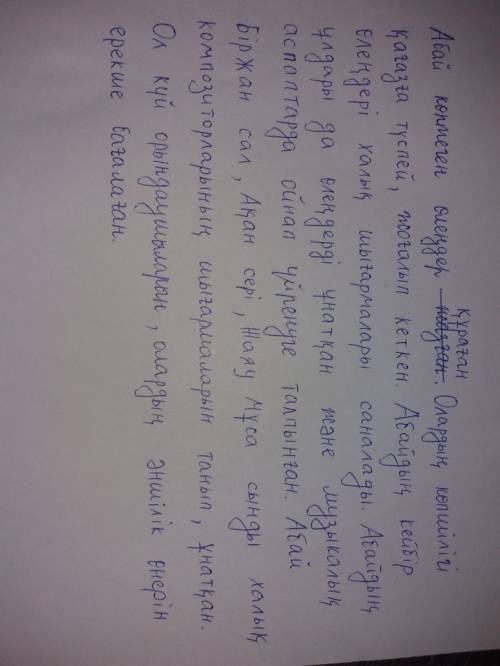 құраған
Абай көптеген өлеңдер жазған. Олардың көпшілігі
қағазға түспей, жоғалып кеткен. Абайдың кейбір
өлеңдері халық шығармалары саналады. Абайдың
ұлдары да өлеңдерді ұнатқан және музыкалық
аспаптарда ойнап үйренуге талпынған. Абай
Біржан сал, Ақан сері, Жаяу Мұса сынды халық
композиторларының шығармаларын танып, ұнатқан.
Ол күй орындаушыларын, олардың әншілік өнерін
ерекше бағалаған.